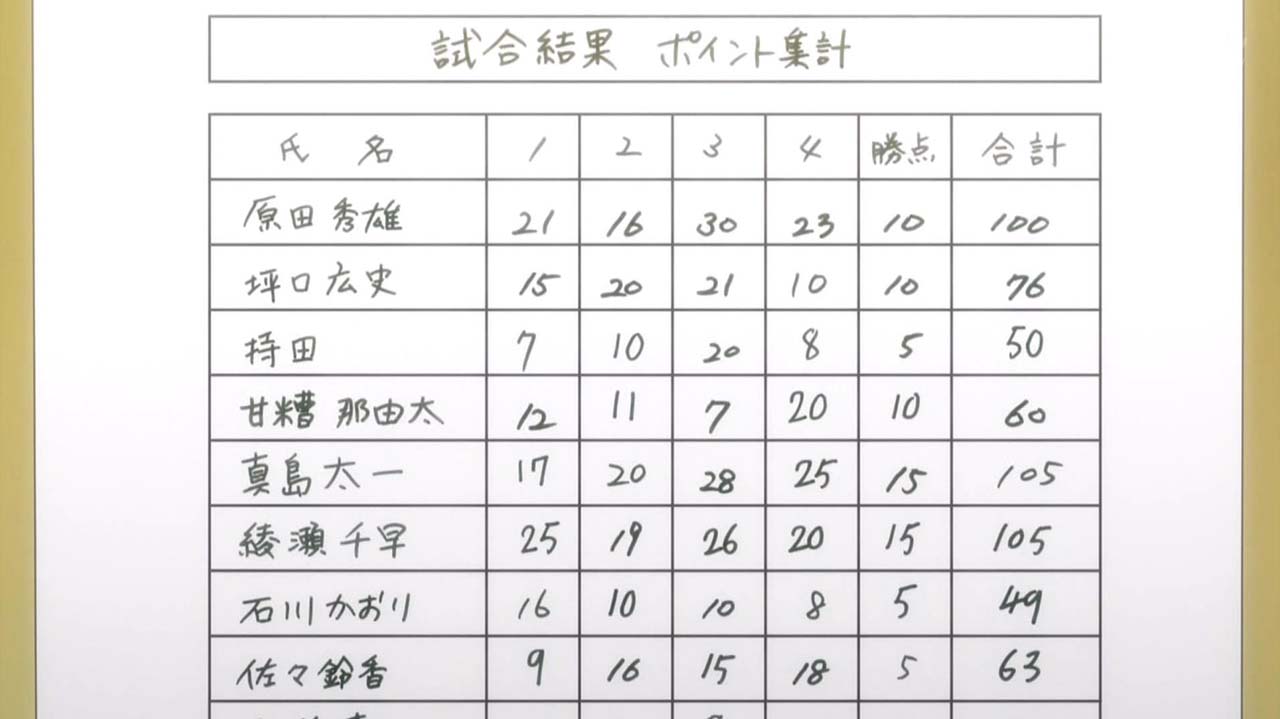 試合結果 ポイント集計
氏 名 1 2 3 4 勝点 合計
原田秀雄 21 16 30 23 10 100
坪口広史 15 20 21 10 10 76
持田 7 10 20 8 5 50
甘糟 那由太 12 11 7 20 10 60
真島太一 17 20 28 25 15 105
綾瀬千早 25 19 26 20 15 105
石川かおり 16 10 10 8 5 49
佐々鈴香 9 16 15 18 5 63